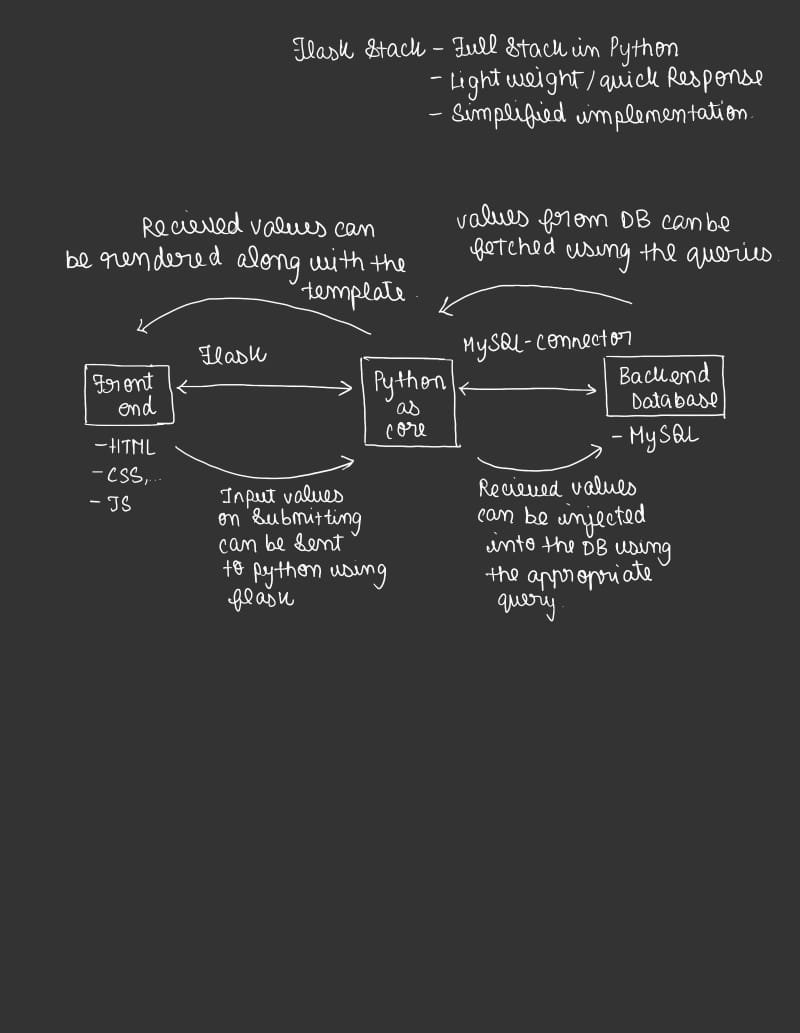 Flask Stack - Full Stack in Python
- Lightweight / quick Response
- Simplified implementation.
Recieved values can
be rendered along with the
template.
values from DB can be
fetched using the queries.
Flask
MySQL-connector
Front
end
Python
as
core
Backend
Database
- HTML
- CSS,...
- JS
- MySQL
Input values
on submitting
can be sent
to python using
flask
Recieved values
can be injected
into the DB using
the appropriate
query.